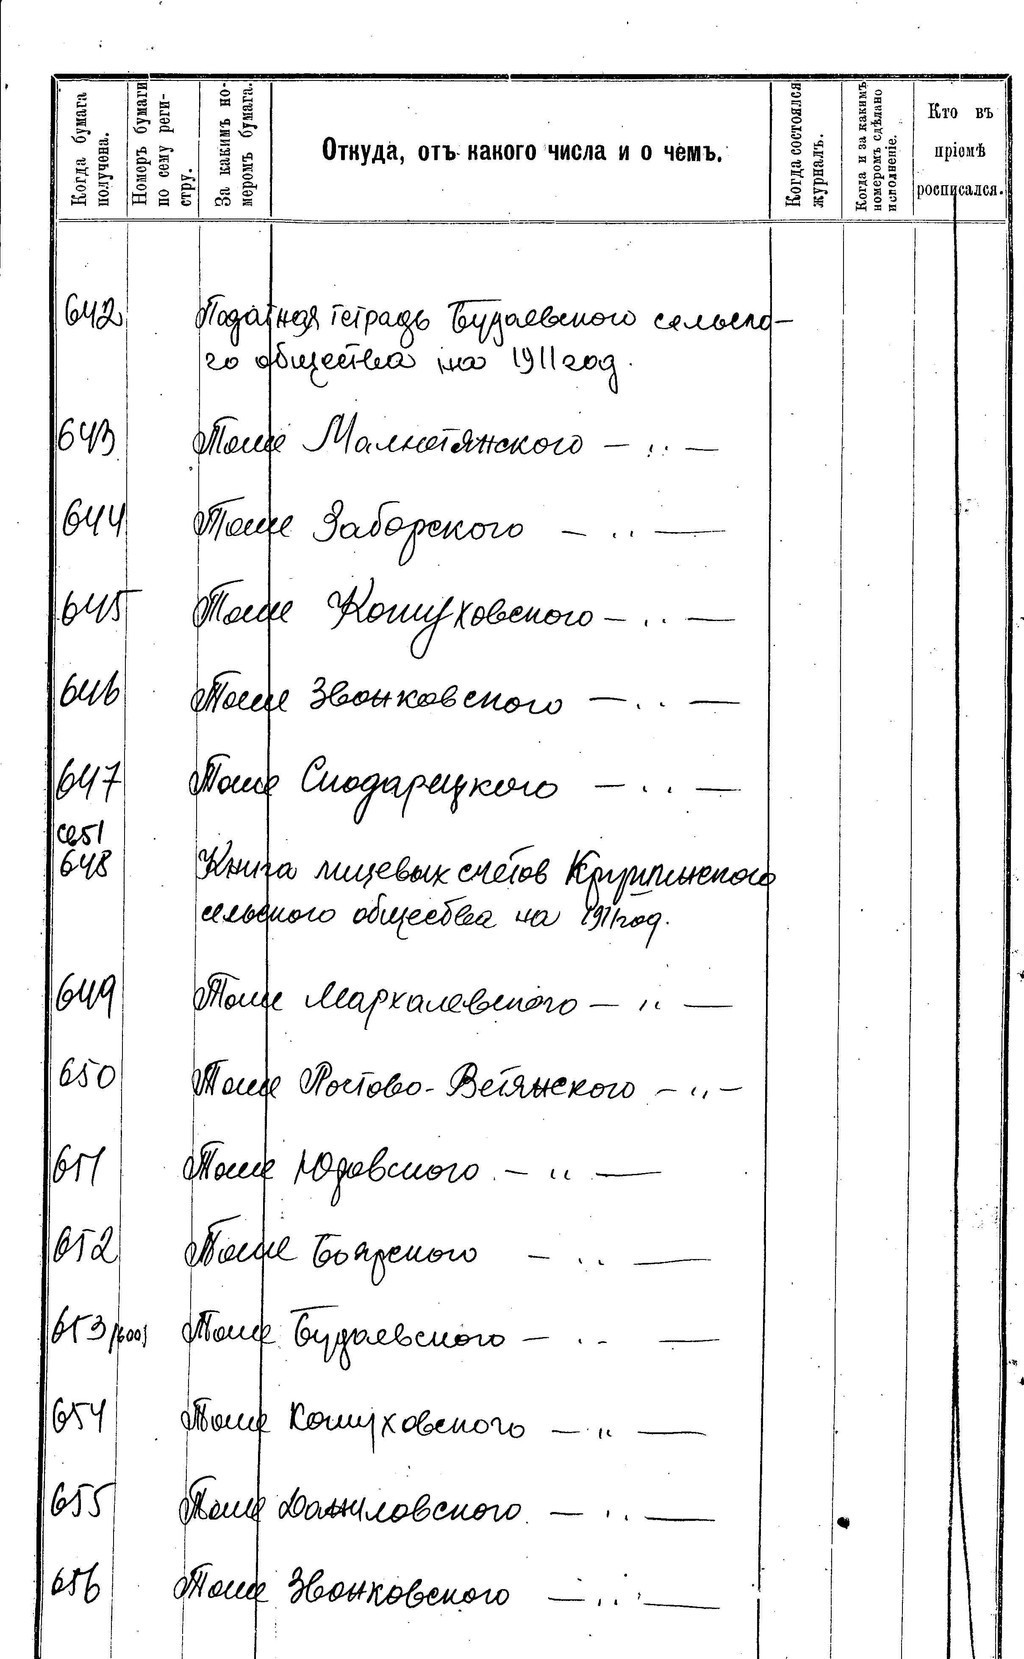 Когда бумага получена.
Номеръ бумаги по сему реги-стру.
За какимъ но-меромъ бумага.
Откуда, отъ какого числа и о чемъ.
Когда состоялся журналъ.
Когда и за какимъ номеромъ сдѣлано исполненіе.
Кто въ пріемѣ росписался.
642 Податная тетрадь Будаевского сельско-
го общества на 1911 год.
643 Тоше Малютянского — ,, —
644 Тоше Заборского — ,, —
645 Тоше Кошуховского — ,, —
646 Тоше Звонковского — ,, —
647 Тоше Сподарецкого — ,, —
св51
648 Книга лицевых счетов Круппинского
сельского общества на 1911 год.
649 Тоше Мархалевского — ,, —
650 Тоше Ростово-Ветянского — ,, —
651 Тоше Юровского — ,, —
652 Тоше Боярского — ,, —
653 Тоше Будаевского — ,, —
654 Тоше Кошуховского — ,, —
655 Тоше Даниловского — ,, —
656 Тоше Звонковского — ,, —